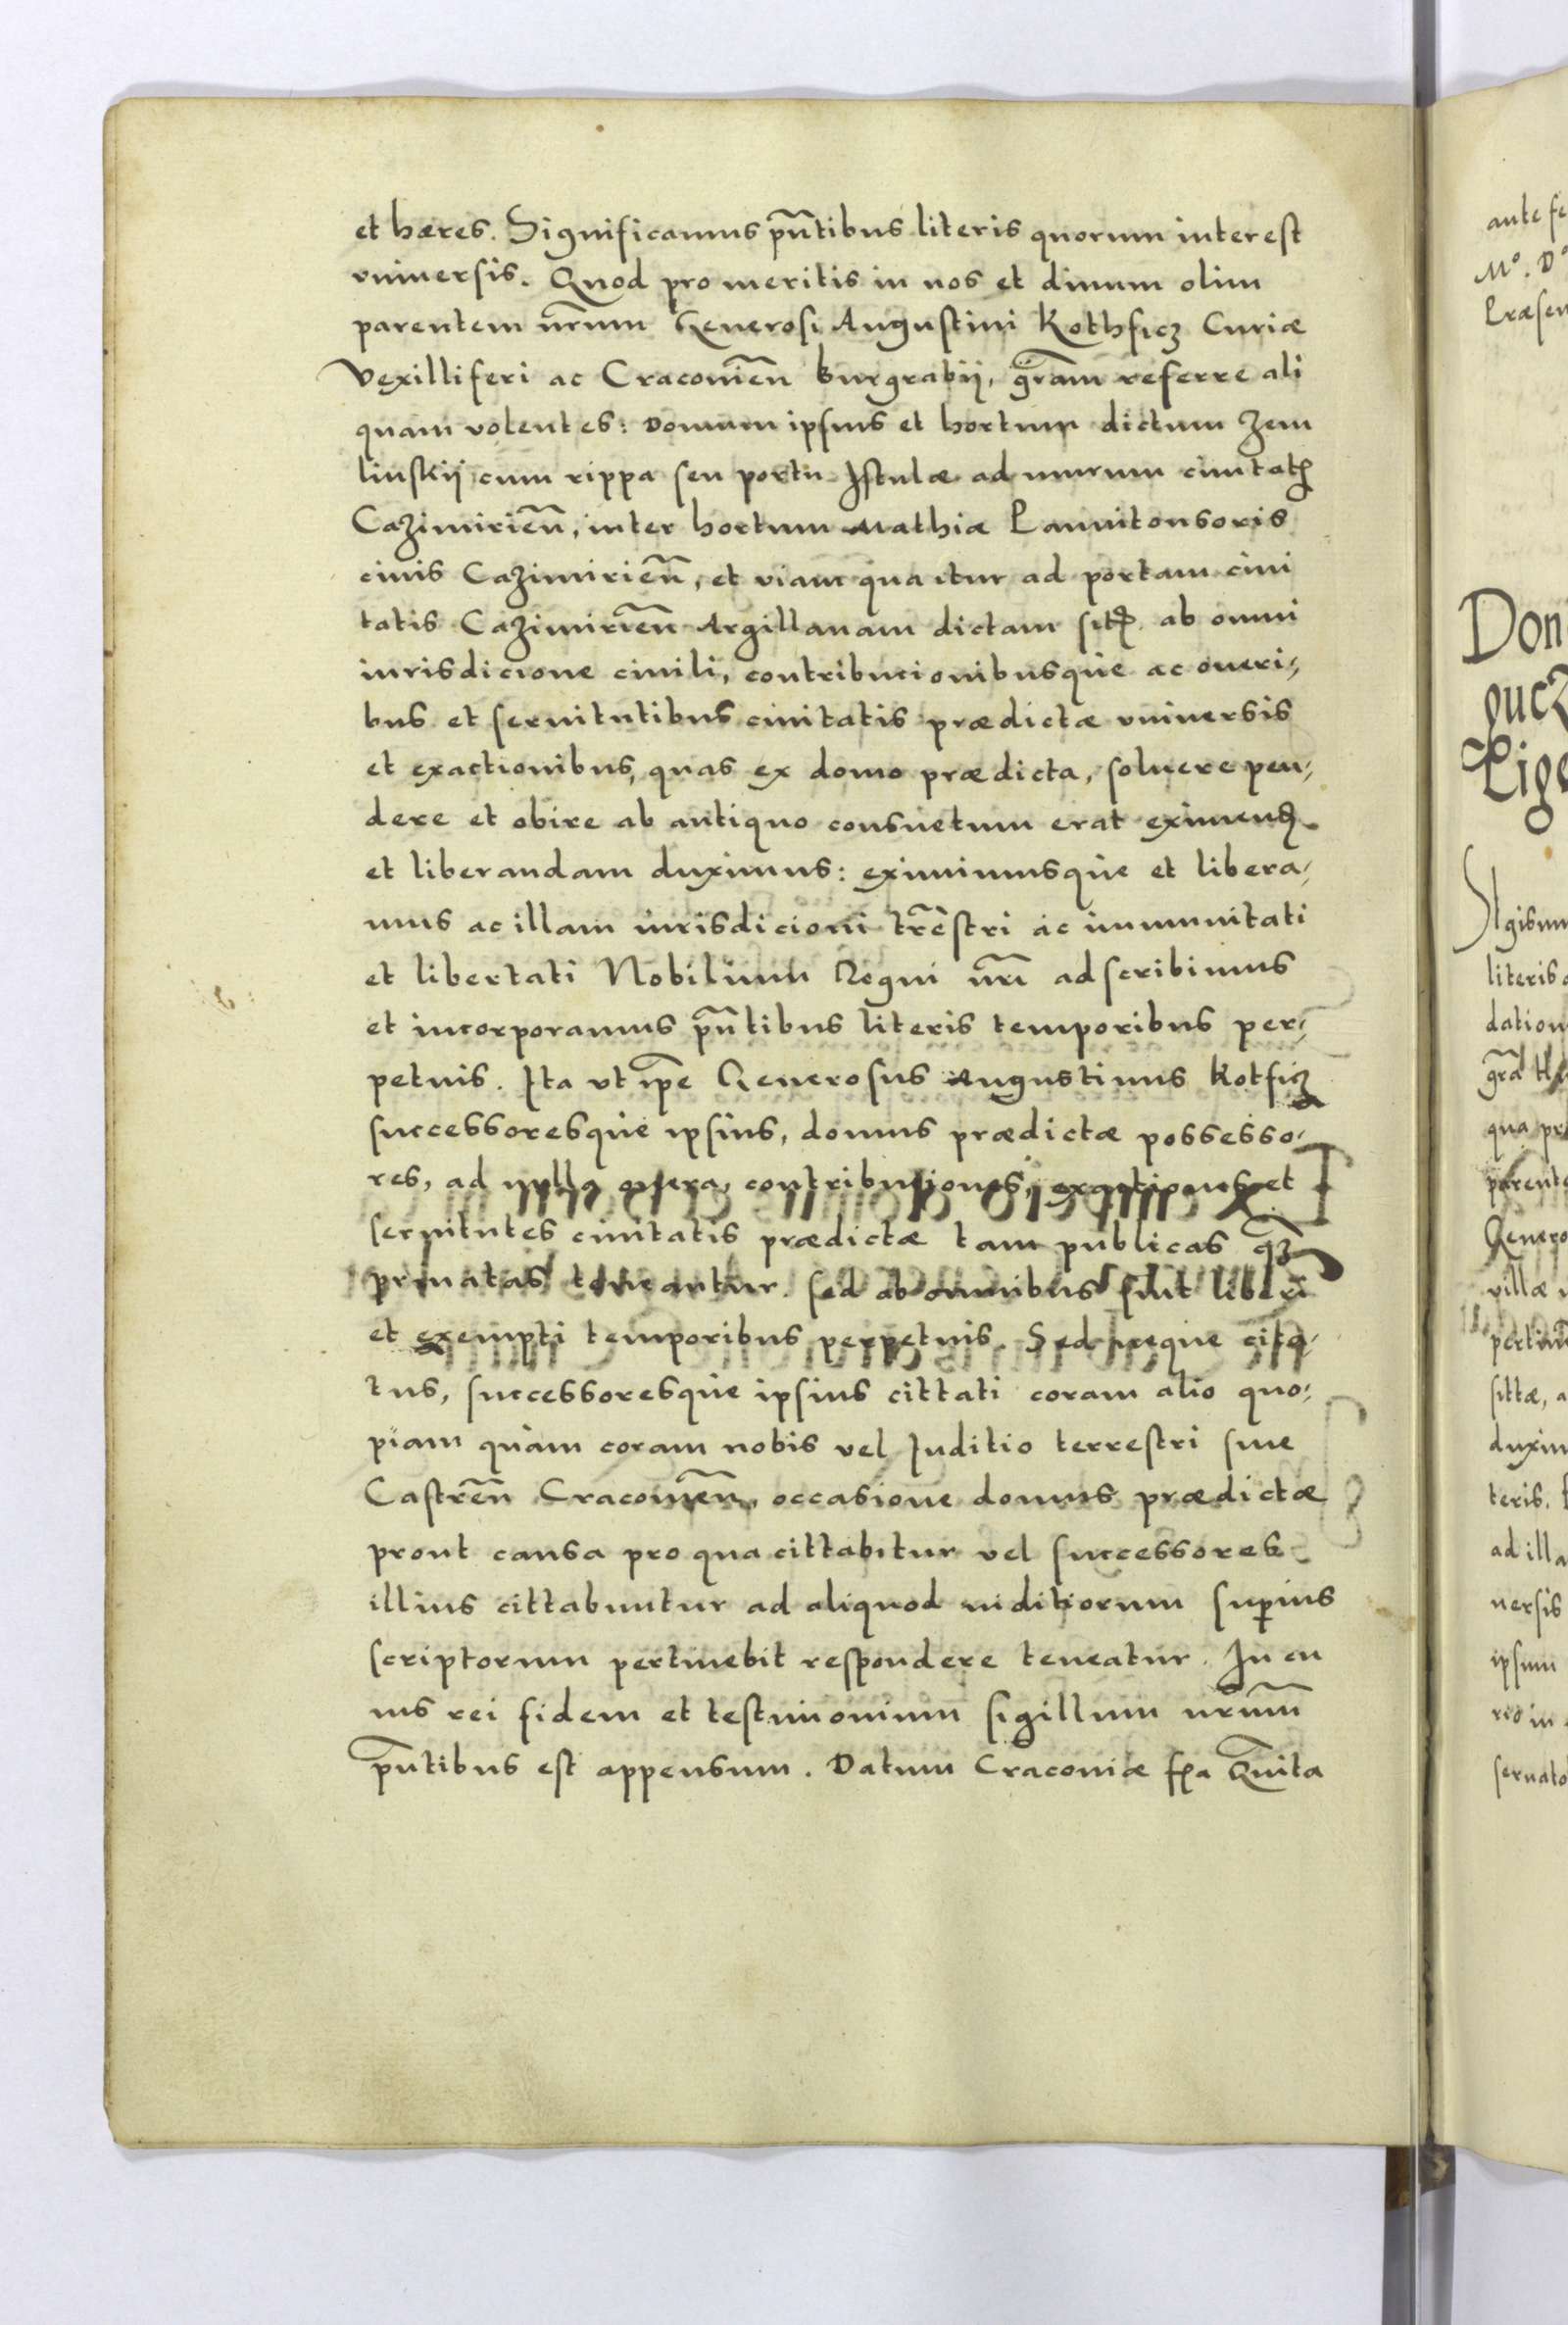 et hæres. Significamus pn̄tibus literis quorum interest
vniuersis. Quod pro meritis in nos et diuum olim
parentem nr̄um Generosi Augustini Kothficz Curiæ
Vexilliferi ac Cracouien̄ Burgrabij, gr̄am referre ali
quam volentes: Domum ipsius et hortum dictum Zem
linskij cum rippa seu portu Istulæ ad murum ciuitatꝭ
Cazimirien̄, inter hortum Mathiæ Pannitonsoris
ciuis Cazimirien̄, et viam qua itur ad portam ciui
tatis Cazimirien̄ Argillanam dictam sitꝭ ab omni
iurisdicione ciuili, contribucionibusque ac oneri,
bus et seruitutibus ciuitatis prædictæ vniuersis
et exactionibus, quas ex domo prædicta, soluere pen,
dere et obire ab antiquo consuetum erat eximendꝭ
et liberandam duximus: eximimusque et libera,
mus ac illam iurisdicioni tr̄estri ac immunitati
et libertati Nobilium Regni nr̄i adscribimus
et incorporamus pn̄tibus literis temporibus per,
petuis. Ita vt ip̄e Generosus Augustinus Kotficz
successoresque ipsius, domus prædictæ possesso,
res, ad nulla onera, contribuciones, exactiones et
seruitutes ciuitatis prædictæ tam publicas q̄ꝫ
priuatas teneantur. sed ab omnibus sint liberi
et exempti temporibus perpetuis. Sed neque cita,
tus, successoresque ipsius cittati coram alio quo,
piam quam coram nobis vel Juditio terrestri siue
Castren̄ Cracouien̄, occasione domus prædictæ
prout causa pro qua cittabitur vel successores
illius cittabuntur ad aliquod iuditiorum superius
scriptorum pertinebit respondere teneatur. In cu
ius rei fidem et testimonium sigillum nr̄um
pn̄tibus est appensum. Datum Cracouiæ fꝭa Quīta
Don
gucz
Lige
literis
qua pr
parent
Genero
villæ
sittæ, a
duxim
teris.
ad illa
uersis
ipsum
seruato